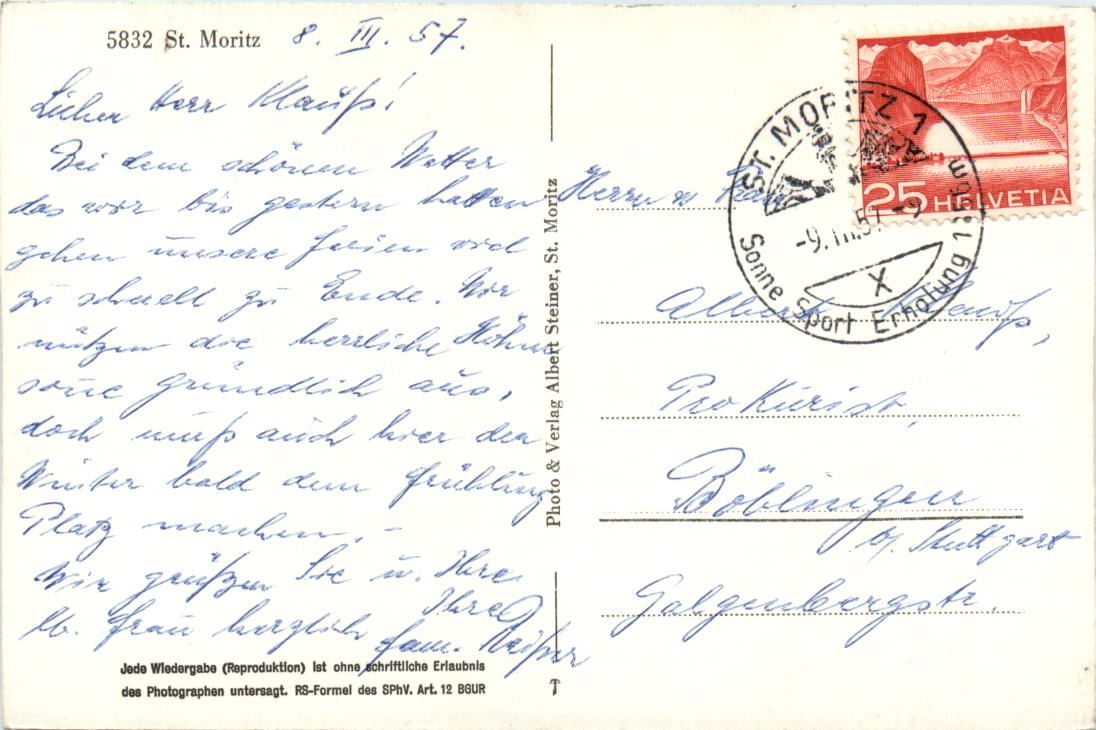 5832 St. Moritz 8. III. 57.
Lieber Herr Klauß!
Bei dem schönen Wetter
das wir bis gestern hatten
gehen unsere Ferien viel
zu schnell zu Ende. Wir
nützen die herrliche Höhen
sonne gründlich aus,
doch muß auch hier der
Winter bald dem Frühling
Platz machen. –
Wir grüßen Sie u. Ihre
lb. Frau herzlich
Ihre
Fam.
Jede Wiedergabe (Reproduktion) ist ohne schriftliche Erlaubnis
des Photographen untersagt. RS-Formel des SPhV. Art. 12 BGUR
Photo & Verlag Albert Steiner, St. Moritz
25 HELVETIA
ST. MORITZ 1
-9.III.57-9
X
Sonne Sport Erholung
Herrn u. Frau
Albert Klauß,
Prokurist,
Böblingen
b/ Stuttgart
Galgenbergstr.